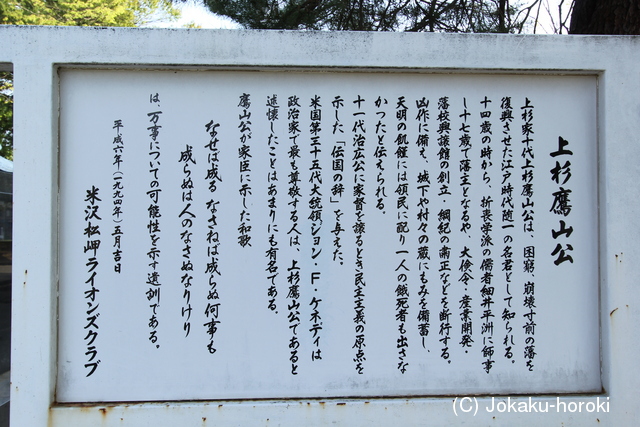 上杉鷹山公
上杉家十代上杉鷹山公は、困窮、崩壊寸前の藩を
復興させた江戸時代随一の名君として知られる。
十四歳の時から、折衷学派の儒者細井平洲に師事
し十七歳で藩主となるや、大倹令・産業開発・
藩校興譲館の創立・綱紀の粛正などを断行する。
凶作に備え、城下や村々の蔵にもみを備蓄し、
天明の飢饉には領民に配り一人の餓死者も出さな
かったと伝えられる。
十一代治広公に家督を譲るとき民主主義の原点を
示した「伝国の辞」を与えた。
米国第三十五代大統領ジョン・F・ケネディは
政治家で最も尊敬する人は、上杉鷹山公であると
述懐したことはあまりにも有名である。
鷹山公が家臣に示した和歌
なせば成る なさねば成らぬ何事も
成らぬは人のなさぬなりけり
は、万事についての可能性を示す遺訓である。
平成六年（一九九四年）五月吉日
米沢松岬ライオンズクラブ
(C) Jokaku-horoki